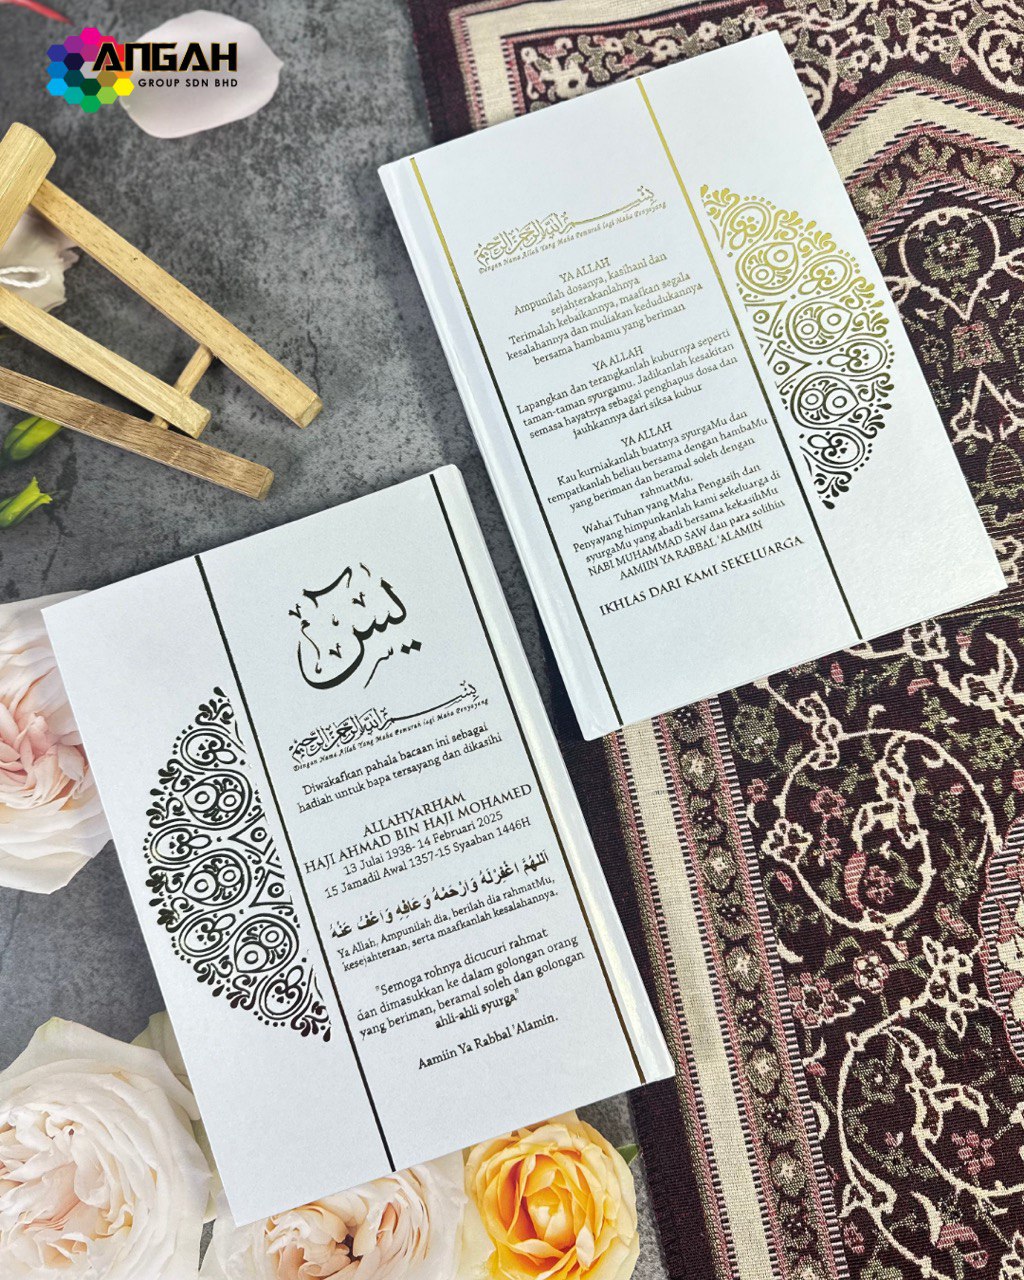 ANGAH
GROUP SDN BHD
بِسْمِ اللَّهِ الرَّحْمَنِ الرَّحِيمِ
Dengan Nama Allah Yang Maha Pemurah lagi Maha Penyayang
YA ALLAH
Ampunilah dosanya, kasihani dan
sejahterakanlahnya
Terimalah kebaikannya, maafkan segala
kesalahannya dan muliakan kedudukannya
bersama hambamu yang beriman
YA ALLAH
Lapangkan dan terangkanlah kuburnya seperti
taman-taman syurgamu. Jadikanlah kesakiran
semasa hayatnya sebagai penghapus dosa dan
jauhkannya dari siksa kubur
YA ALLAH
Kau kurniakanlah buatnya syurgaMu dan
tempatkanlah beliau bersama dengan hambaMu
yang beriman dan beramal soleh dengan
rahmatMu.
Wahai Tuhan yang Maha Pengasih dan
Penyayang himpunkanlah kami sekeluarga di
syurgaMu yang abadi bersama kekasihMu
NABI MUHAMMAD SAW dan para solihin
AAMIIN YA RABBAL 'ALAMIN
IKHLAS DARI KAMI SEKELUARGA
يس
بِسْمِ اللَّهِ الرَّحْمَنِ الرَّحِيمِ
Dengan Nama Allah Yang Maha Pemurah lagi Maha Penyayang
Diwakafkan pahala bacaan ini sebagai
hadiah untuk bapa tersayang dan dikasihi
ALLAHYARHAM
HAJI AHMAD BIN HAJI MOHAMED
13 Julai 1938- 14 Februari 2025
15 Jamadil Awal 1357-15 Syaaban 1446H
اَللهُمَّ اغْفِرْلَهُ وَارْحَمْهُ وَعَافِهِ وَاعْفُ عَنْهُ
Ya Allah, Ampunilah dia, berilah dia rahmatMu,
kesejahteraan, serta maafkanlah kesalahannya.
"Semoga rohnya dicucuri rahmat
dan dimasukkan ke dalam golongan orang
yang beriman, beramal soleh dan golongan
ahli-ahli syurga"
Aamiin Ya Rabbal 'Alamin.